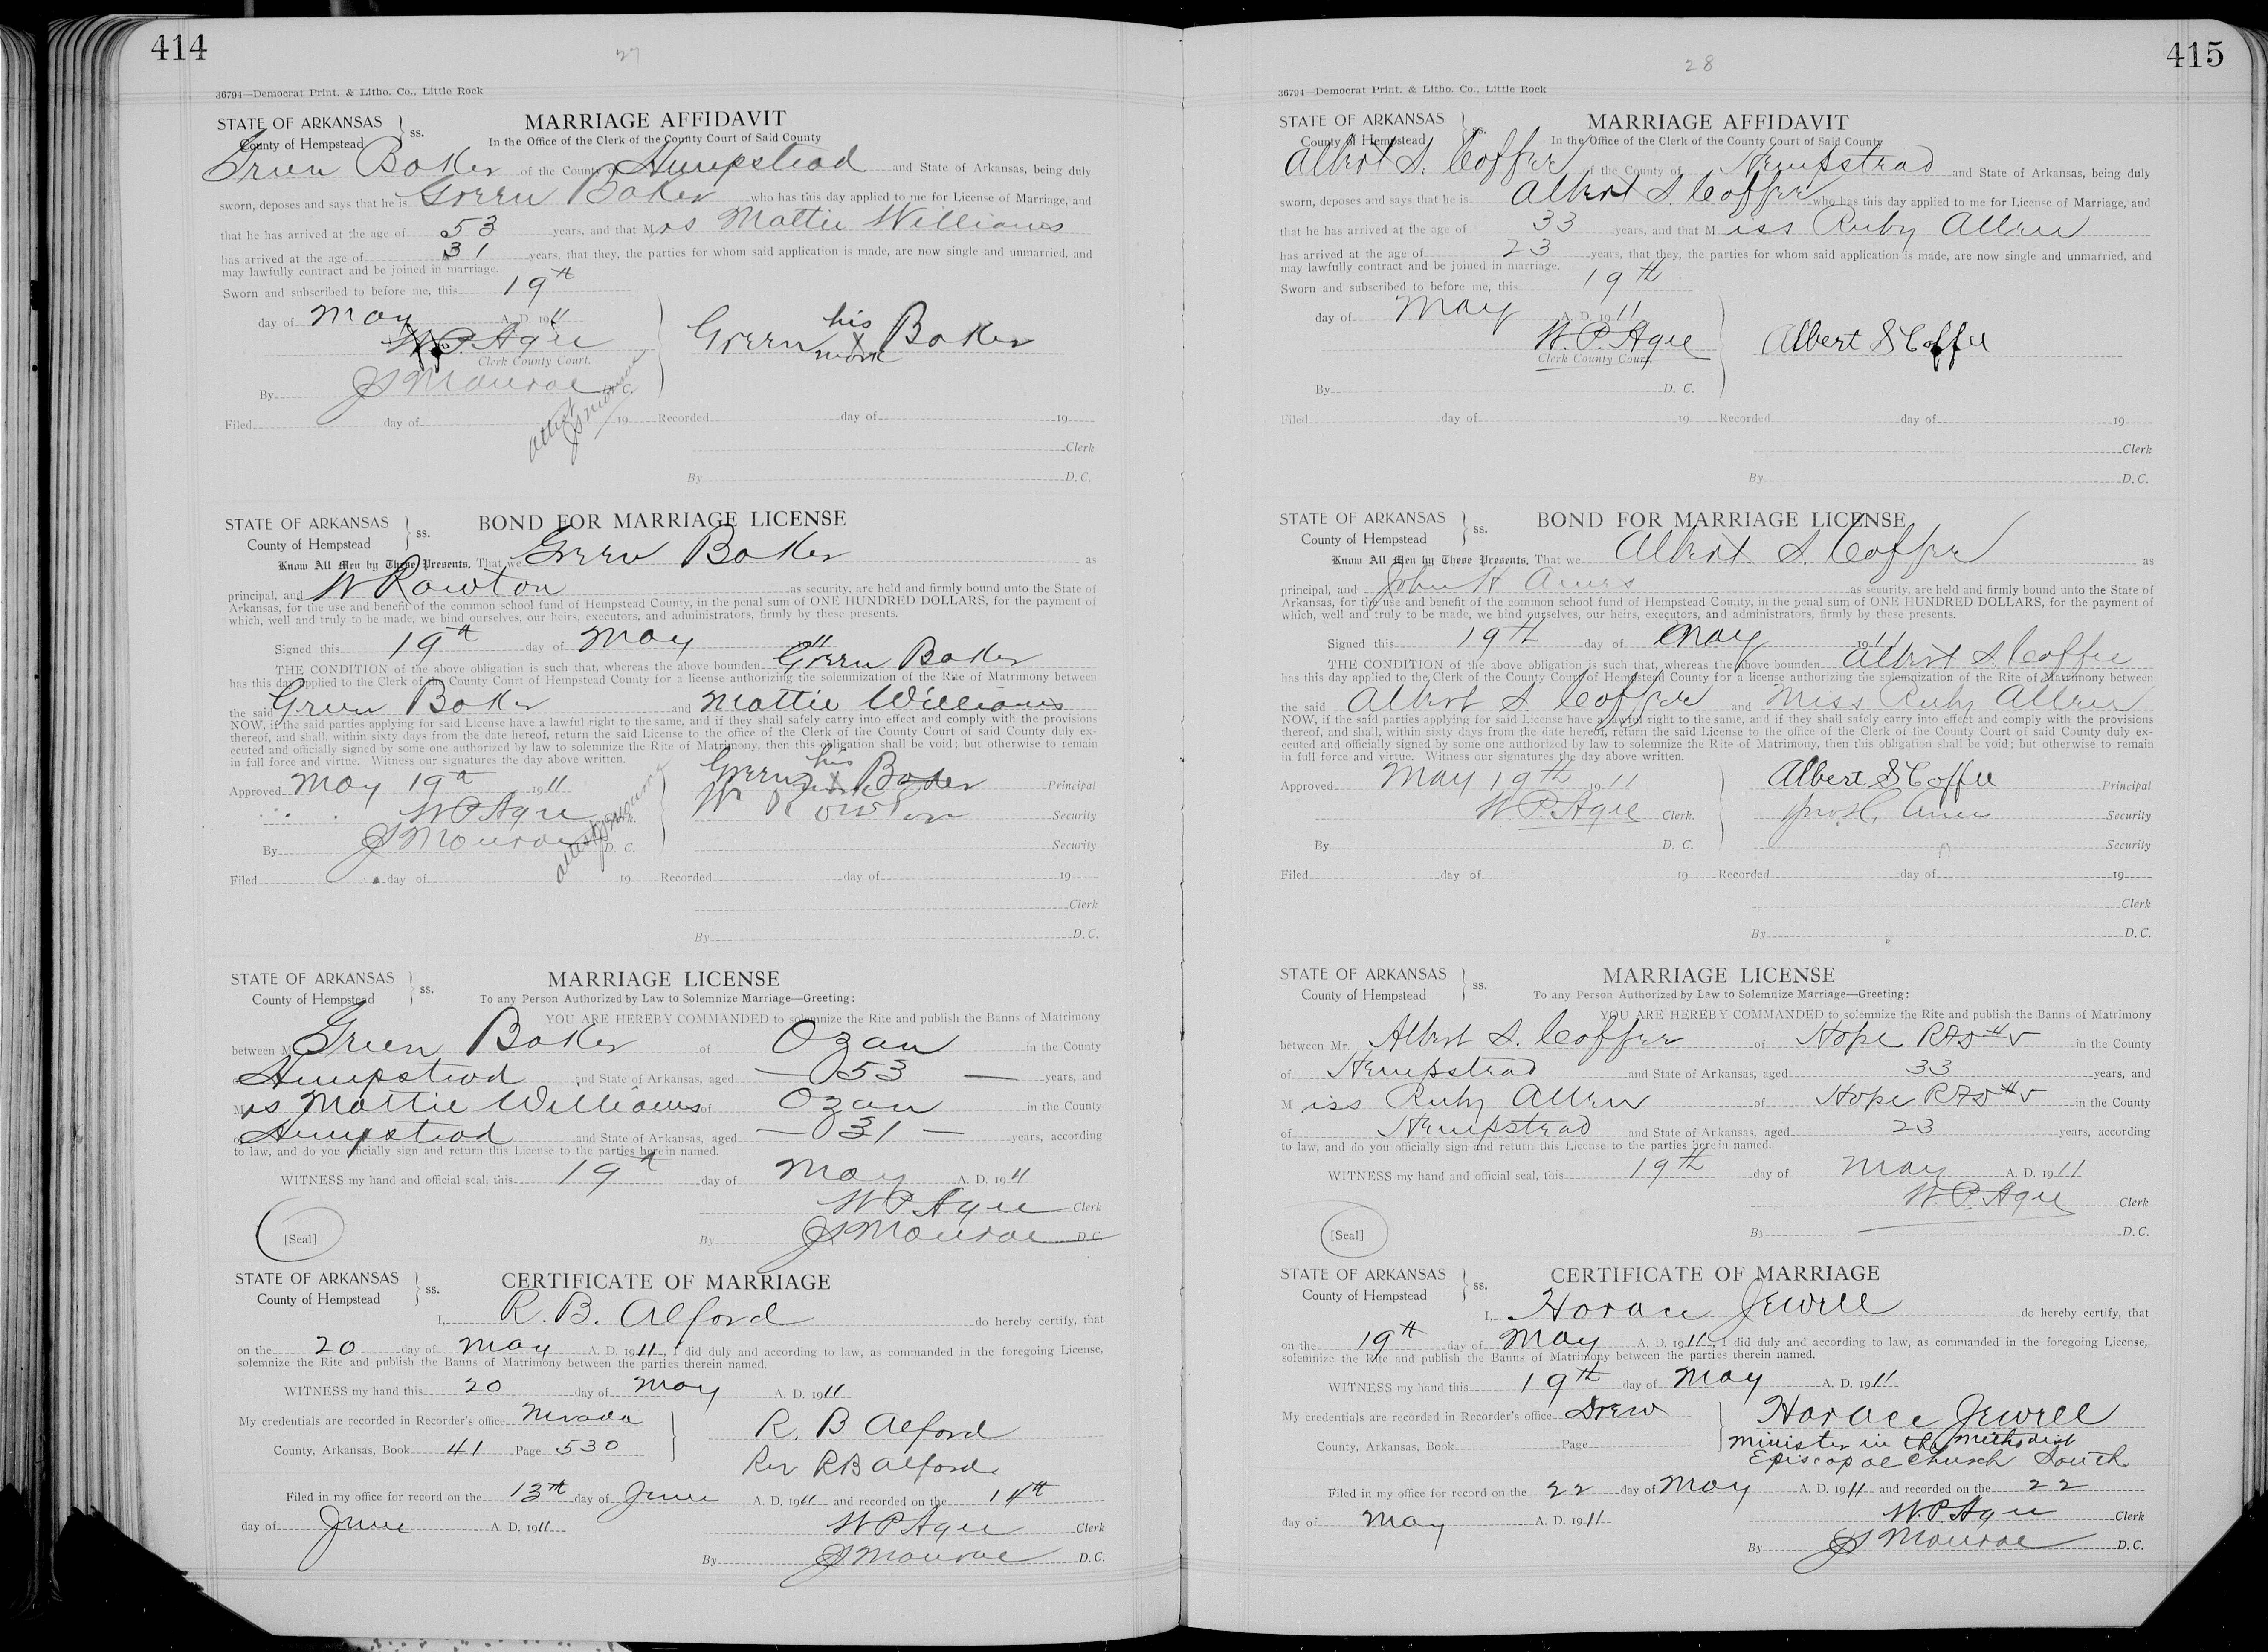 414
27
36794—Democrat Print. & Litho. Co., Little Rock
STATE OF ARKANSAS } ss.
County of Hempstead
MARRIAGE AFFIDAVIT
In the Office of the Clerk of the County Court of Said County
Green Baker of the County of Hempstead and State of Arkansas, being duly
sworn, deposes and says that he is Green Baker who has this day applied to me for License of Marriage, and
that he has arrived at the age of 53 years, and that Mrs Mattie Williams
has arrived at the age of 31 years, that they, the parties for whom said application is made, are now single and unmarried, and
may lawfully contract and be joined in marriage.
Sworn and subscribed to before me, this 19th
day of May A. D. 1911
W. P. Agee
Clerk County Court.
By J S Monroe D. C.
Green his x mark Baker
attest J S Monroe
Filed day of 19 Recorded day of 19
Clerk
By D. C.
STATE OF ARKANSAS } ss.
County of Hempstead
BOND FOR MARRIAGE LICENSE
Know All Men by These Presents, That we Green Baker as
principal, and W Rowton as security, are held and firmly bound unto the State of
Arkansas, for the use and benefit of the common school fund of Hempstead County, in the penal sum of ONE HUNDRED DOLLARS, for the payment of
which, well and truly to be made, we bind ourselves, our heirs, executors, and administrators, firmly by these presents.
Signed this 19th day of May 11
THE CONDITION of the above obligation is such that, whereas the above bounden Green Baker
has this day applied to the Clerk of the County Court of Hempstead County for a license authorizing the solemnization of the Rite of Matrimony between
the said Green Baker and Mattie Williams
NOW, if the said parties applying for said License have a lawful right to the same, and if they shall safely carry into effect and comply with the provisions
thereof, and shall, within sixty days from the date hereof, return the said License to the office of the Clerk of the County Court of said County duly ex-
ecuted and officially signed by some one authorized by law to solemnize the Rite of Matrimony, then this obligation shall be void; but otherwise to remain
in full force and virtue. Witness our signatures the day above written.
Approved May 19th 1911
W P Agee Clerk.
By J S Monroe D. C.
attest J S Monroe
Green his x mark Baker Principal
W Rowton Security
Security
Filed day of 19 Recorded day of 19
Clerk
By D. C.
STATE OF ARKANSAS } ss.
County of Hempstead
MARRIAGE LICENSE
To any Person Authorized by Law to Solemnize Marriage—Greeting:
YOU ARE HEREBY COMMANDED to solemnize the Rite and publish the Banns of Matrimony
between Mr. Green Baker of Ozan in the County
of Hempstead and State of Arkansas, aged 53 years, and
Mrs Mattie Williams of Ozan in the County
of Hempstead and State of Arkansas, aged 31 years, according
to law, and do you officially sign and return this License to the parties herein named.
WITNESS my hand and official seal, this 19th day of May A. D. 1911
W P Agee Clerk
[Seal]
By J S Monroe D. C.
STATE OF ARKANSAS } ss.
County of Hempstead
CERTIFICATE OF MARRIAGE
I, R. B. Alford do hereby certify, that
on the 20 day of May A. D. 1911, I did duly and according to law, as commanded in the foregoing License,
solemnize the Rite and publish the Banns of Matrimony between the parties therein named.
WITNESS my hand this 20 day of May A. D. 1911
My credentials are recorded in Recorder's office Nevada
County, Arkansas, Book 41 Page 530
R. B Alford
Rev R B Alford
Filed in my office for record on the 13th day of June A. D. 1911 and recorded on the 14th
day of June A. D. 1911
W P Agee Clerk
By J S Monroe D. C.
415
28
36794—Democrat Print. & Litho. Co., Little Rock
STATE OF ARKANSAS } ss.
County of Hempstead
MARRIAGE AFFIDAVIT
In the Office of the Clerk of the County Court of Said County
Albert S. Coffee of the County of Hempstead and State of Arkansas, being duly
sworn, deposes and says that he is Albert S. Coffee who has this day applied to me for License of Marriage, and
that he has arrived at the age of 33 years, and that Miss Ruby Allen
has arrived at the age of 23 years, that they, the parties for whom said application is made, are now single and unmarried, and
may lawfully contract and be joined in marriage.
Sworn and subscribed to before me, this 19th
day of May A. D. 1911
W. P. Agee
Clerk County Court.
By D. C.
Albert S Coffee
Filed day of 19 Recorded day of 19
Clerk
By D. C.
STATE OF ARKANSAS } ss.
County of Hempstead
BOND FOR MARRIAGE LICENSE
Know All Men by These Presents, That we Albert S. Coffee as
principal, and John H Ames as security, are held and firmly bound unto the State of
Arkansas, for the use and benefit of the common school fund of Hempstead County, in the penal sum of ONE HUNDRED DOLLARS, for the payment of
which, well and truly to be made, we bind ourselves, our heirs, executors, and administrators, firmly by these presents.
Signed this 19th day of May 1911
THE CONDITION of the above obligation is such that, whereas the above bounden Albert S. Coffee
has this day applied to the Clerk of the County Court of Hempstead County for a license authorizing the solemnization of the Rite of Matrimony between
the said Albert S Coffee and Miss Ruby Allen
NOW, if the said parties applying for said License have a lawful right to the same, and if they shall safely carry into effect and comply with the provisions
thereof, and shall, within sixty days from the date hereof, return the said License to the office of the Clerk of the County Court of said County duly ex-
ecuted and officially signed by some one authorized by law to solemnize the Rite of Matrimony, then this obligation shall be void; but otherwise to remain
in full force and virtue. Witness our signatures the day above written.
Approved May 19th 1911
W. P. Agee Clerk.
By D. C.
Albert S Coffee Principal
Jno. H. Ames Security
Security
Filed day of 19 Recorded day of 19
Clerk
By D. C.
STATE OF ARKANSAS } ss.
County of Hempstead
MARRIAGE LICENSE
To any Person Authorized by Law to Solemnize Marriage—Greeting:
YOU ARE HEREBY COMMANDED to solemnize the Rite and publish the Banns of Matrimony
between Mr. Albert S. Coffee of Hope RFD #5 in the County
of Hempstead and State of Arkansas, aged 33 years, and
Miss Ruby Allen of Hope RFD #5 in the County
of Hempstead and State of Arkansas, aged 23 years, according
to law, and do you officially sign and return this License to the parties herein named.
WITNESS my hand and official seal, this 19th day of May A. D. 1911
W. P. Agee Clerk
[Seal]
By D. C.
STATE OF ARKANSAS } ss.
County of Hempstead
CERTIFICATE OF MARRIAGE
I, Horace Jewell do hereby certify, that
on the 19th day of May A. D. 1911, I did duly and according to law, as commanded in the foregoing License,
solemnize the Rite and publish the Banns of Matrimony between the parties therein named.
WITNESS my hand this 19th day of May A. D. 1911
My credentials are recorded in Recorder's office Drew
County, Arkansas, Book Page
Horace Jewell
Minister in the Methodist
Episcopal Church South.
Filed in my office for record on the 22 day of May A. D. 1911 and recorded on the 22
day of May A. D. 1911
W. P. Agee Clerk
By J S Monroe D. C.